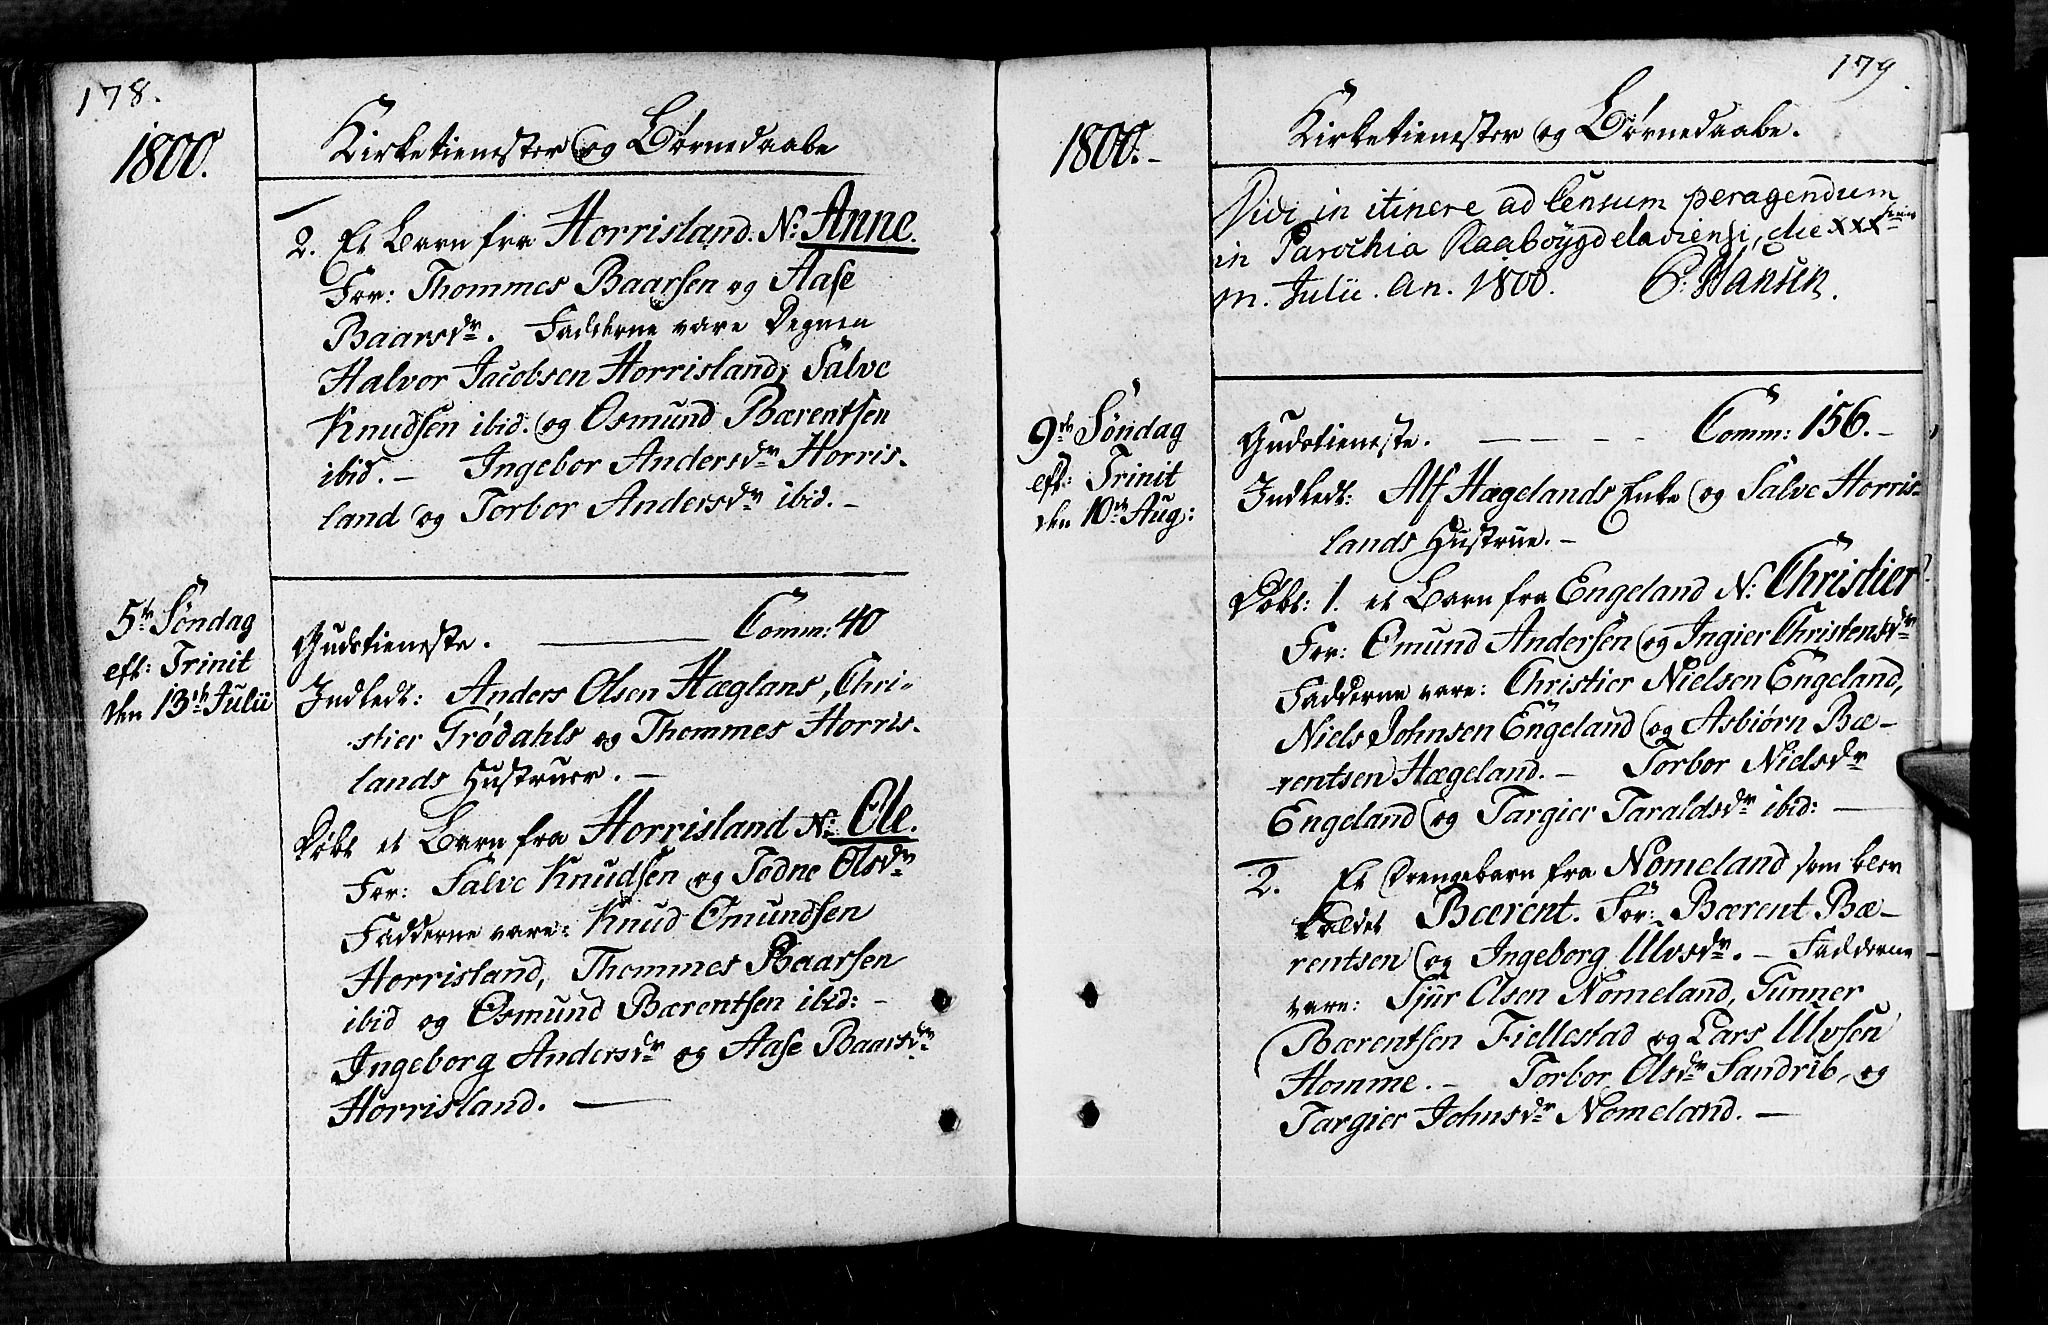 178.
1800.
Kirketienester og Børnedaabe
2. Et Barn fra Horrisland. N: Anne.
For: Thommes Baarsen og Aase
Baarsdr. Fadderne vare Degnen
Halvor Jacobsen Horrisland, Salve
Knudsen ibid. og Osmund Bærentsen
ibid. - Ingebor Andersdr Horris-
land og Torbor Andersdr ibid. -
5te Søndag
eft: Trinit
den 13de Julii
Gudstieneste. Comm: 40
Indledt: Anders Olsen Hæglans, Chri-
stier Trødahls og Thommes Horris-
lands Hustruer. -
Døbt et Barn fra Horrisland N: Ole.
For: Salve Knudsen og Todne Olsdr
Fadderne vare: Knud Omundsen
Horrisland, Thommes Baarsen
ibid og Osmund Bærentsen ibid: -
Ingeborg Andersdr og Aase Baarsdr
Horrisland. -
179.
1800. -
Kirketienester og Børnedaabe.
Vidi in itinere ad Censum peragendum
in Parochia Raabøygdelaviensi, die xxx
m. Julii. An. 1800. P. Hansen.
9de Søndag
eft: Trinit
den 10de Aug:
Gudstieneste. - - - - Comm: 156. -
Indledt: Alf Hægelands Enke og Salve Horris-
lands Hustrue. -
Døbt: 1. et Barn fra Engeland N: Christier.
For: Omund Andersen og Ingier Christensdr
Fadderne vare: Christier Nielsen Engeland,
Niels Johnsen Engeland og Asbiørn Bæ-
rentsen Hægeland. - Torbor Nielsdr
Engeland og Targier Taraldsdr ibid: -
2. Et Drengebarn fra Nomeland som blev
kaldet Bærent. For: Bærent Bæ-
rentsen og Ingeborg Ulvsdr. - Fadderne
vare: Siur Olsen Nomeland, Gunner
Bærentsen Fiellestad og Lars Ulvsen
Homme. - Torbor Olsdr Sandrib, og
Targier Johnsdr Nomeland. -